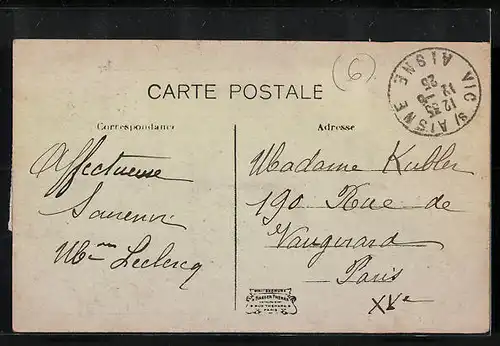 (6)
CARTE POSTALE
VIC S/ AISNE
AISNE
12 35
Correspondance
Adresse
Affectueux
Souvenir
Mme Leclercq
Madame Kubler
190 Rue de
Vaugirard
Paris
XVe
PARIS